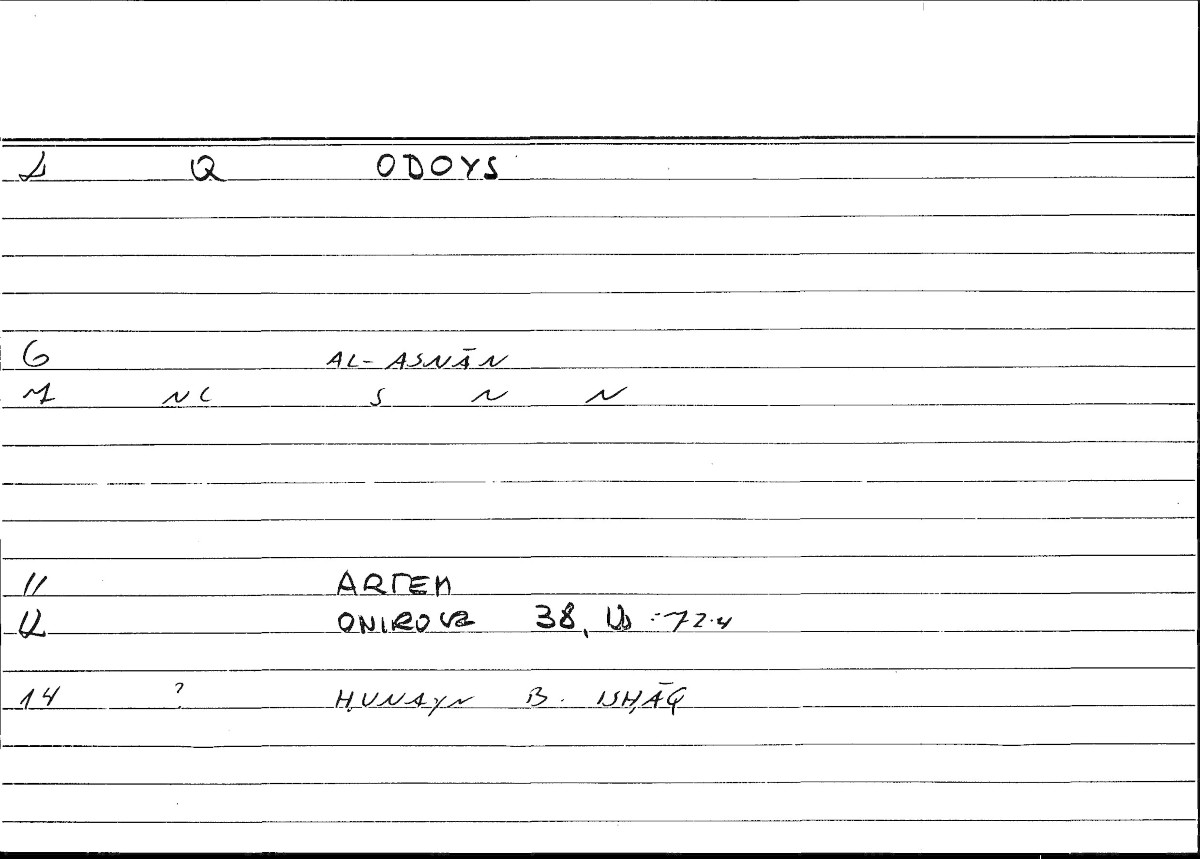 Q ODOYS
6 AL-ASNĀN
NC S N N
11 ARTEM
ONIROCR 38,
14 ? ḤUNAYN B. ISḤĀQ